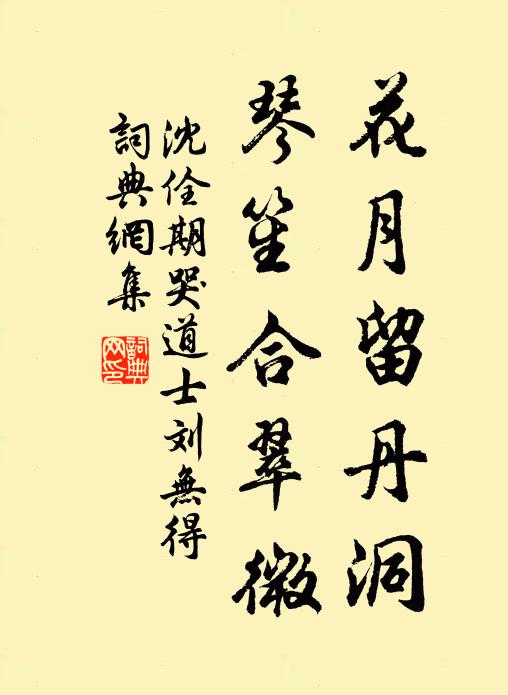 花月留丹洞
琴笙合翠微
沈佺期哭道士刘無得
詞典網集
詞典網印